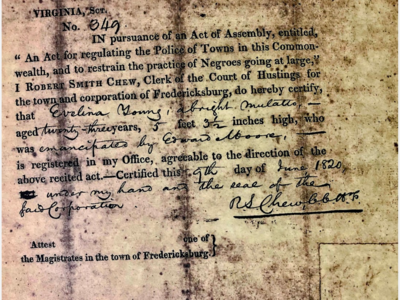 VIRGINIA, Sct.
No. 349
IN pursuance of an Act of Assembly, entitled,
"An Act for regulating the Police of Towns in this Common-
wealth, and to restrain the practice of Negroes going at large,"
I ROBERT SMITH CHEW, Clerk of the Court of Hustings for
the town and corporation of Fredericksburg, do hereby certify,
that Evelina Young, a bright mulatto
aged twenty three years, 5 feet 3½ inches high, who
was emancipated by Edward Moore,
is registered in my Office, agreeable to the direction of the
above recited act.—Certified this 9th day of June 1820
under my hand and the seal of the
said Corporation
R S Chew
Attest one of
the Magistrates in the town of Fredericksburg.